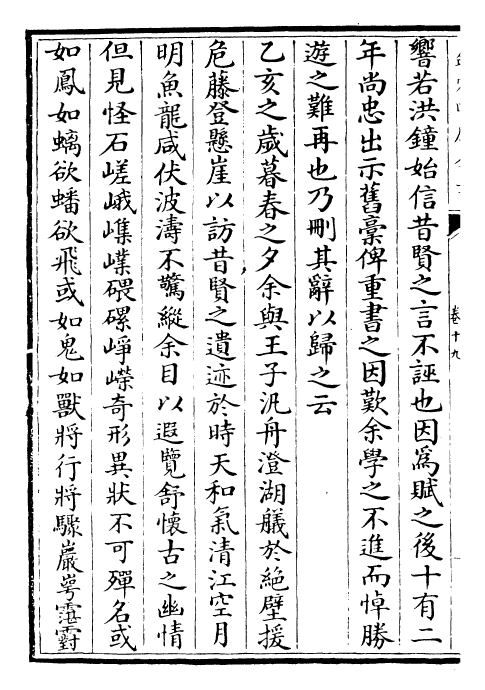 響若洪鐘始信昔賢之言不誣也因爲賦之後十有二
年尚忠出示舊稾俾重書之因歎余學之不進而悼勝
遊之難再也乃刪其辭以歸之云
乙亥之歲暮春之夕余與王子汎舟澄湖艤於絕壁援
危藤登懸崖以訪昔賢之遺迹於時天和氣清江空月
明魚龍咸伏波濤不驚縱余目以遐覽舒懷古之幽情
但見怪石嵯峨嶕嶫磈磥崢嶸奇形異狀不可殫名或
如鳳如螭欲蟠欲飛或如鬼如獸將行將驟巖崿霮䨴
卷十九